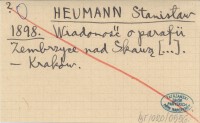 HEUMANN Stanisław
1898. Wiadomość o parafii
Zembrzyce nad Skawą [..].
– Kraków.